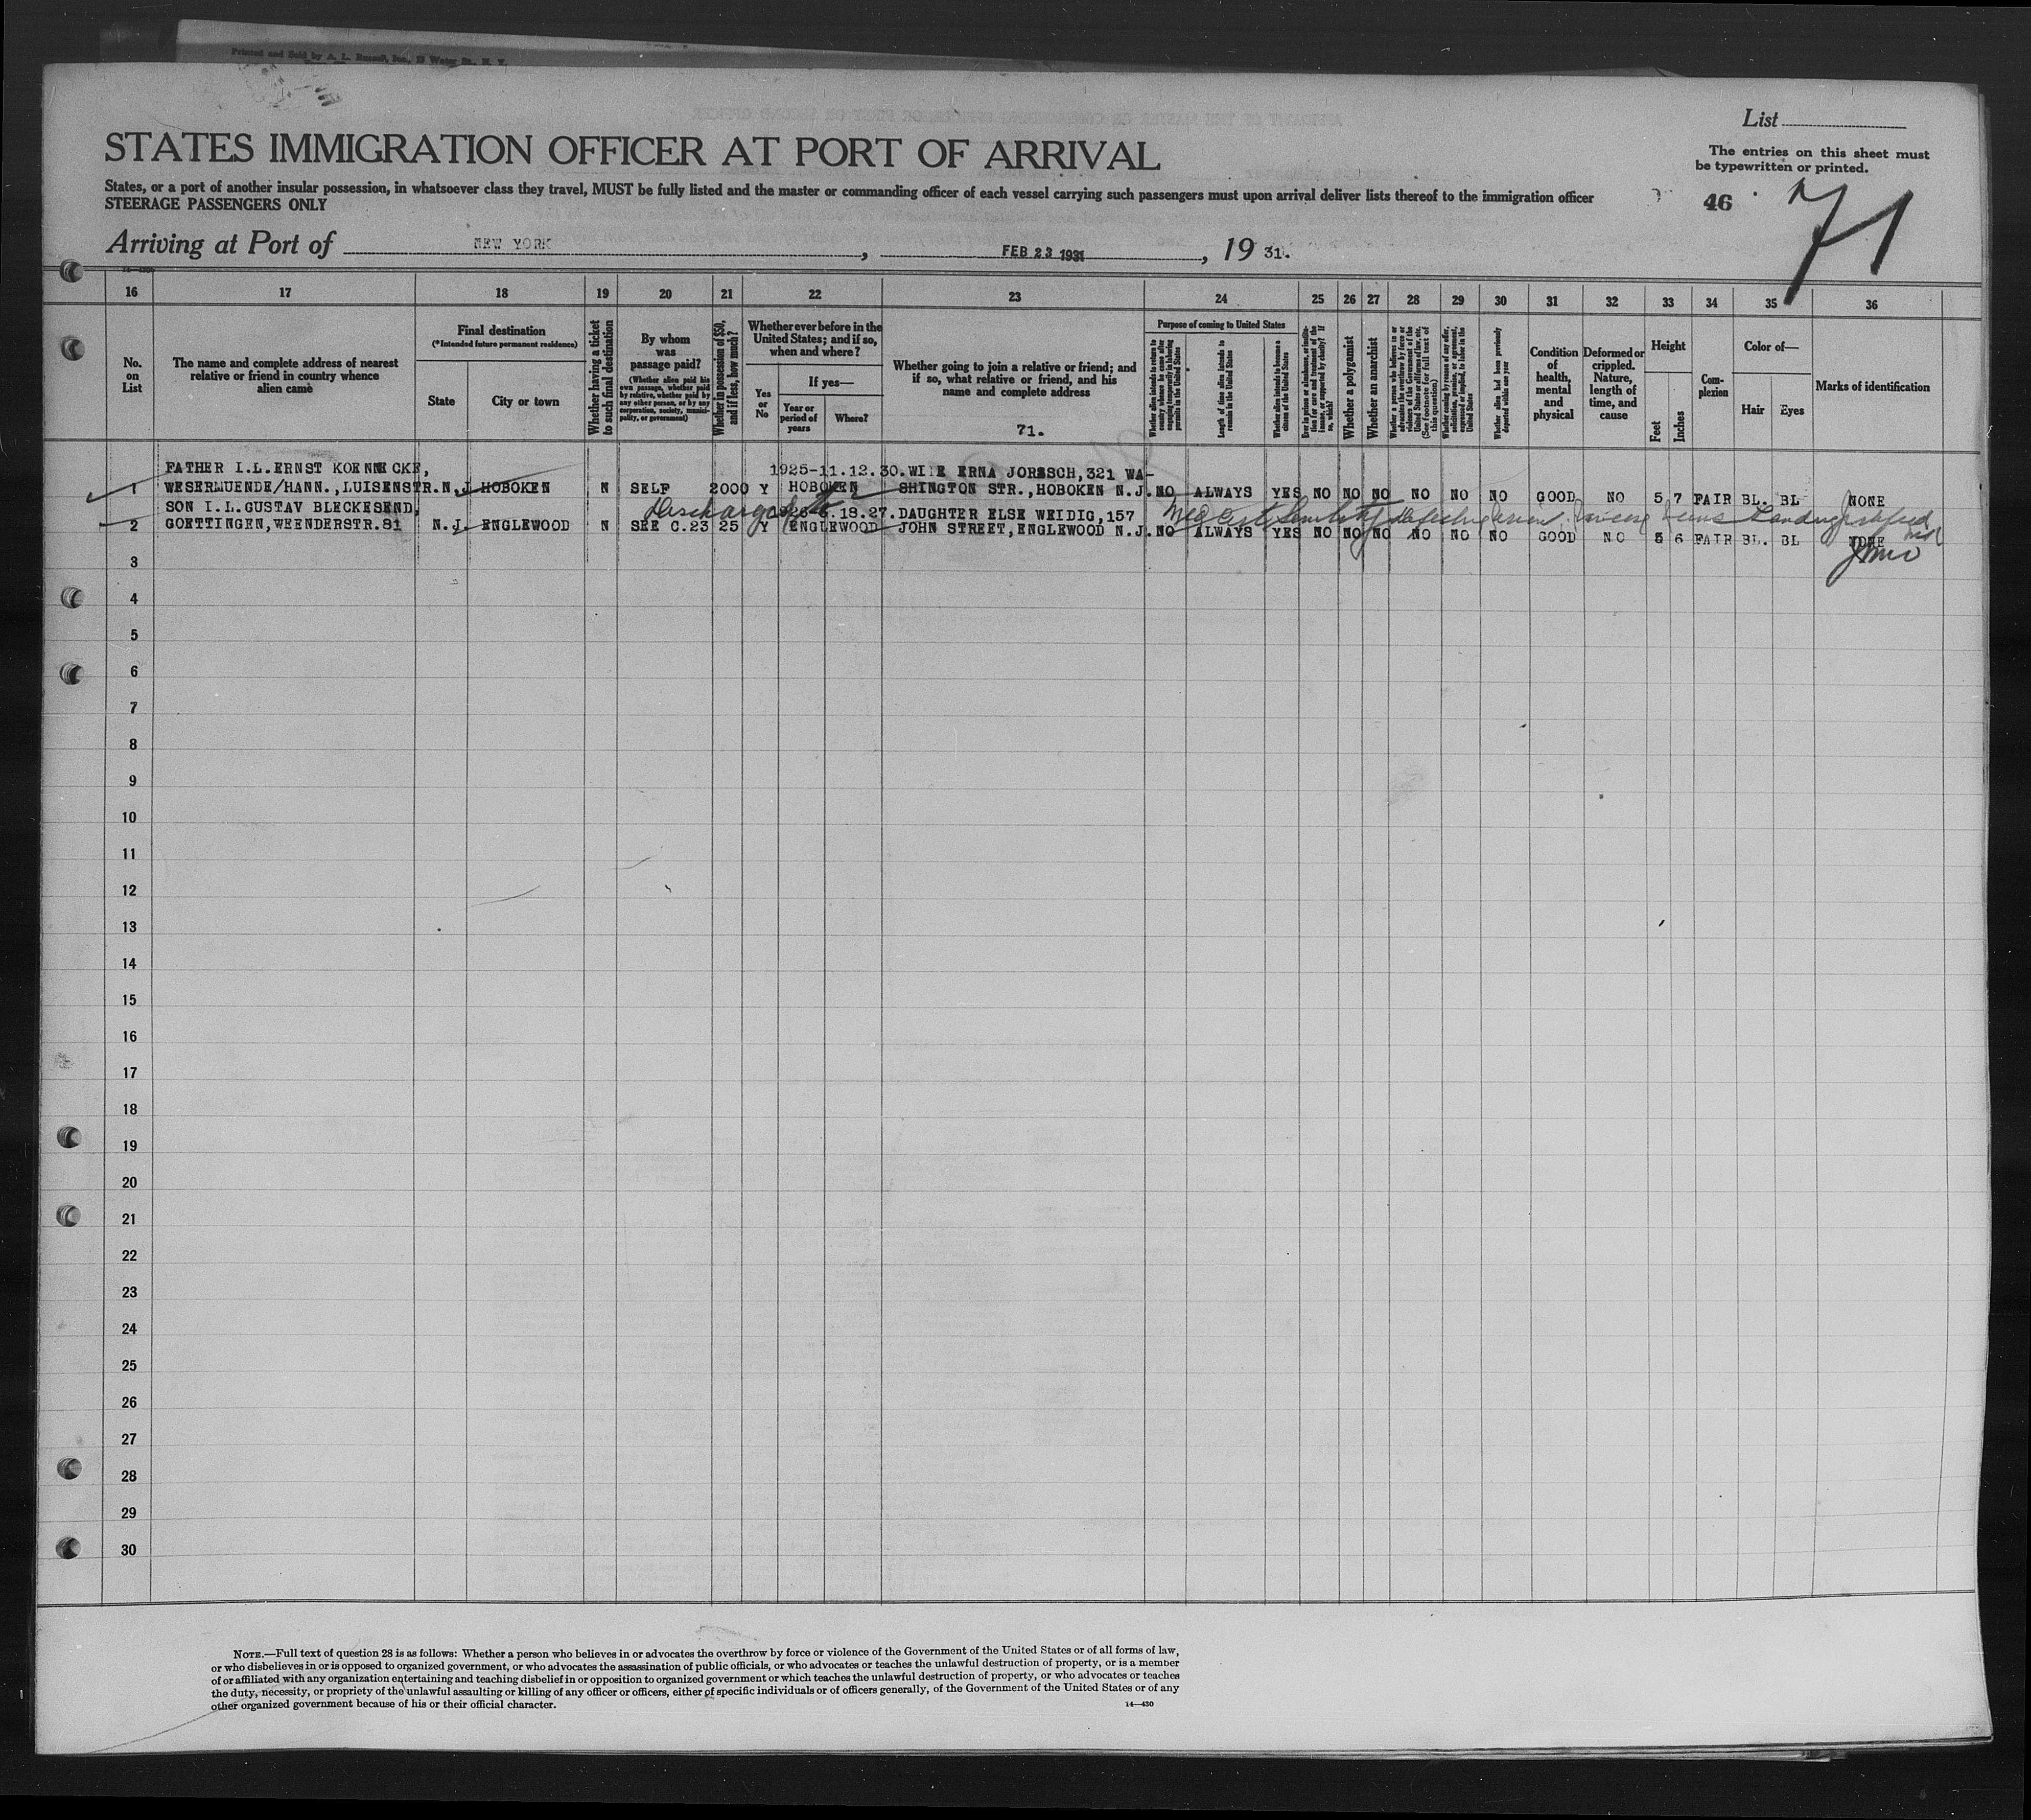 Printed and Sold by A. L. Russell, Inc., 13 Water St., N. Y.
List
STATES IMMIGRATION OFFICER AT PORT OF ARRIVAL
The entries on this sheet must
be typewritten or printed.
States, or a port of another insular possession, in whatsoever class they travel, MUST be fully listed and the master or commanding officer of each vessel carrying such passengers must upon arrival deliver lists thereof to the immigration officer
STEERAGE PASSENGERS ONLY
46
71
Arriving at Port of NEW YORK, FEB 23 1931, 19 31.
16 17 18 19 20 21 22 23 24 25 26 27 28 29 30 31 32 33 34 35 36
No.
on
List
The name and complete address of nearest
relative or friend in country whence
alien came
Final destination
(*Intended future permanent residence)
State
City or town
Whether having a ticket
to such final destination
By whom
was
passage paid?
(Whether alien paid his
own passage, whether paid
by relative, whether paid by
any other person, or by any
corporation, society, munici-
pality, or government)
Whether in possession of $50,
and if less, how much?
Whether ever before in the
United States; and if so,
when and where?
Yes
or
No
If yes—
Year or
period of
years
Where?
Whether going to join a relative or friend; and
if so, what relative or friend, and his
name and complete address
71.
Purpose of coming to United States
Whether alien intends to return to
country whence he came after
engaging temporarily in laboring
pursuits in the United States
Length of time alien intends to
remain in the United States
Whether alien intends to become a
citizen of the United States
Ever in prison or almshouse, or institu-
tion for care and treatment of the
insane, or supported by charity? If
so, which?
Whether a polygamist
Whether an anarchist
Whether a person who believes in or
advocates the overthrow by force or
violence of the Government of the
United States or all forms of law, etc.
(See footnote for full text of
this question)
Whether coming by reason of any offer,
solicitation, promise, or agreement,
expressed or implied, to labor in the
United States
Whether alien had been previously
deported within one year
Condition
of
health,
mental
and
physical
Deformed or
crippled.
Nature,
length of
time, and
cause
Height
Feet
Inches
Com-
plexion
Color of—
Hair
Eyes
Marks of identification
FATHER I.L.ERNST KOENNECKE, 1925-11.12.30. WIFE ERNA JORESCH, 321 WA-
1 WESERMUENDE/HANN., LUISENSTR. N.J. HOBOKEN N SELF 2000 Y HOBOKEN SHINGTON STR., HOBOKEN N.J. NO ALWAYS YES NO NO NO NO NO NO GOOD NO 5 7 FAIR BL. BL NONE
SON I.L.GUSTAV BLECKESEND, 18.27. DAUGHTER ELSE WEIDIG, 157
Discharged
Med Cert Landing
2 GOETTINGEN, WEENDERSTR.81 N.J. ENGLEWOOD N SEE C.23 25 Y ENGLEWOOD JOHN STREET, ENGLEWOOD N.J. NO ALWAYS YES NO NO NO NO NO NO GOOD NO 5 6 FAIR BL. BL NONE
3
4
5
6
7
8
9
10
11
12
13
14
15
16
17
18
19
20
21
22
23
24
25
26
27
28
29
30
NOTE.—Full text of question 28 is as follows: Whether a person who believes in or advocates the overthrow by force or violence of the Government of the United States or of all forms of law,
or who disbelieves in or is opposed to organized government, or who advocates the assassination of public officials, or who advocates or teaches the unlawful destruction of property, or is a member
of or affiliated with any organization entertaining and teaching disbelief in or opposition to organized government or which teaches the unlawful destruction of property, or who advocates or teaches
the duty, necessity, or propriety of the unlawful assaulting or killing of any officer or officers, either of specific individuals or of officers generally, of the Government of the United States or of any
other organized government because of his or their official character.
14—430